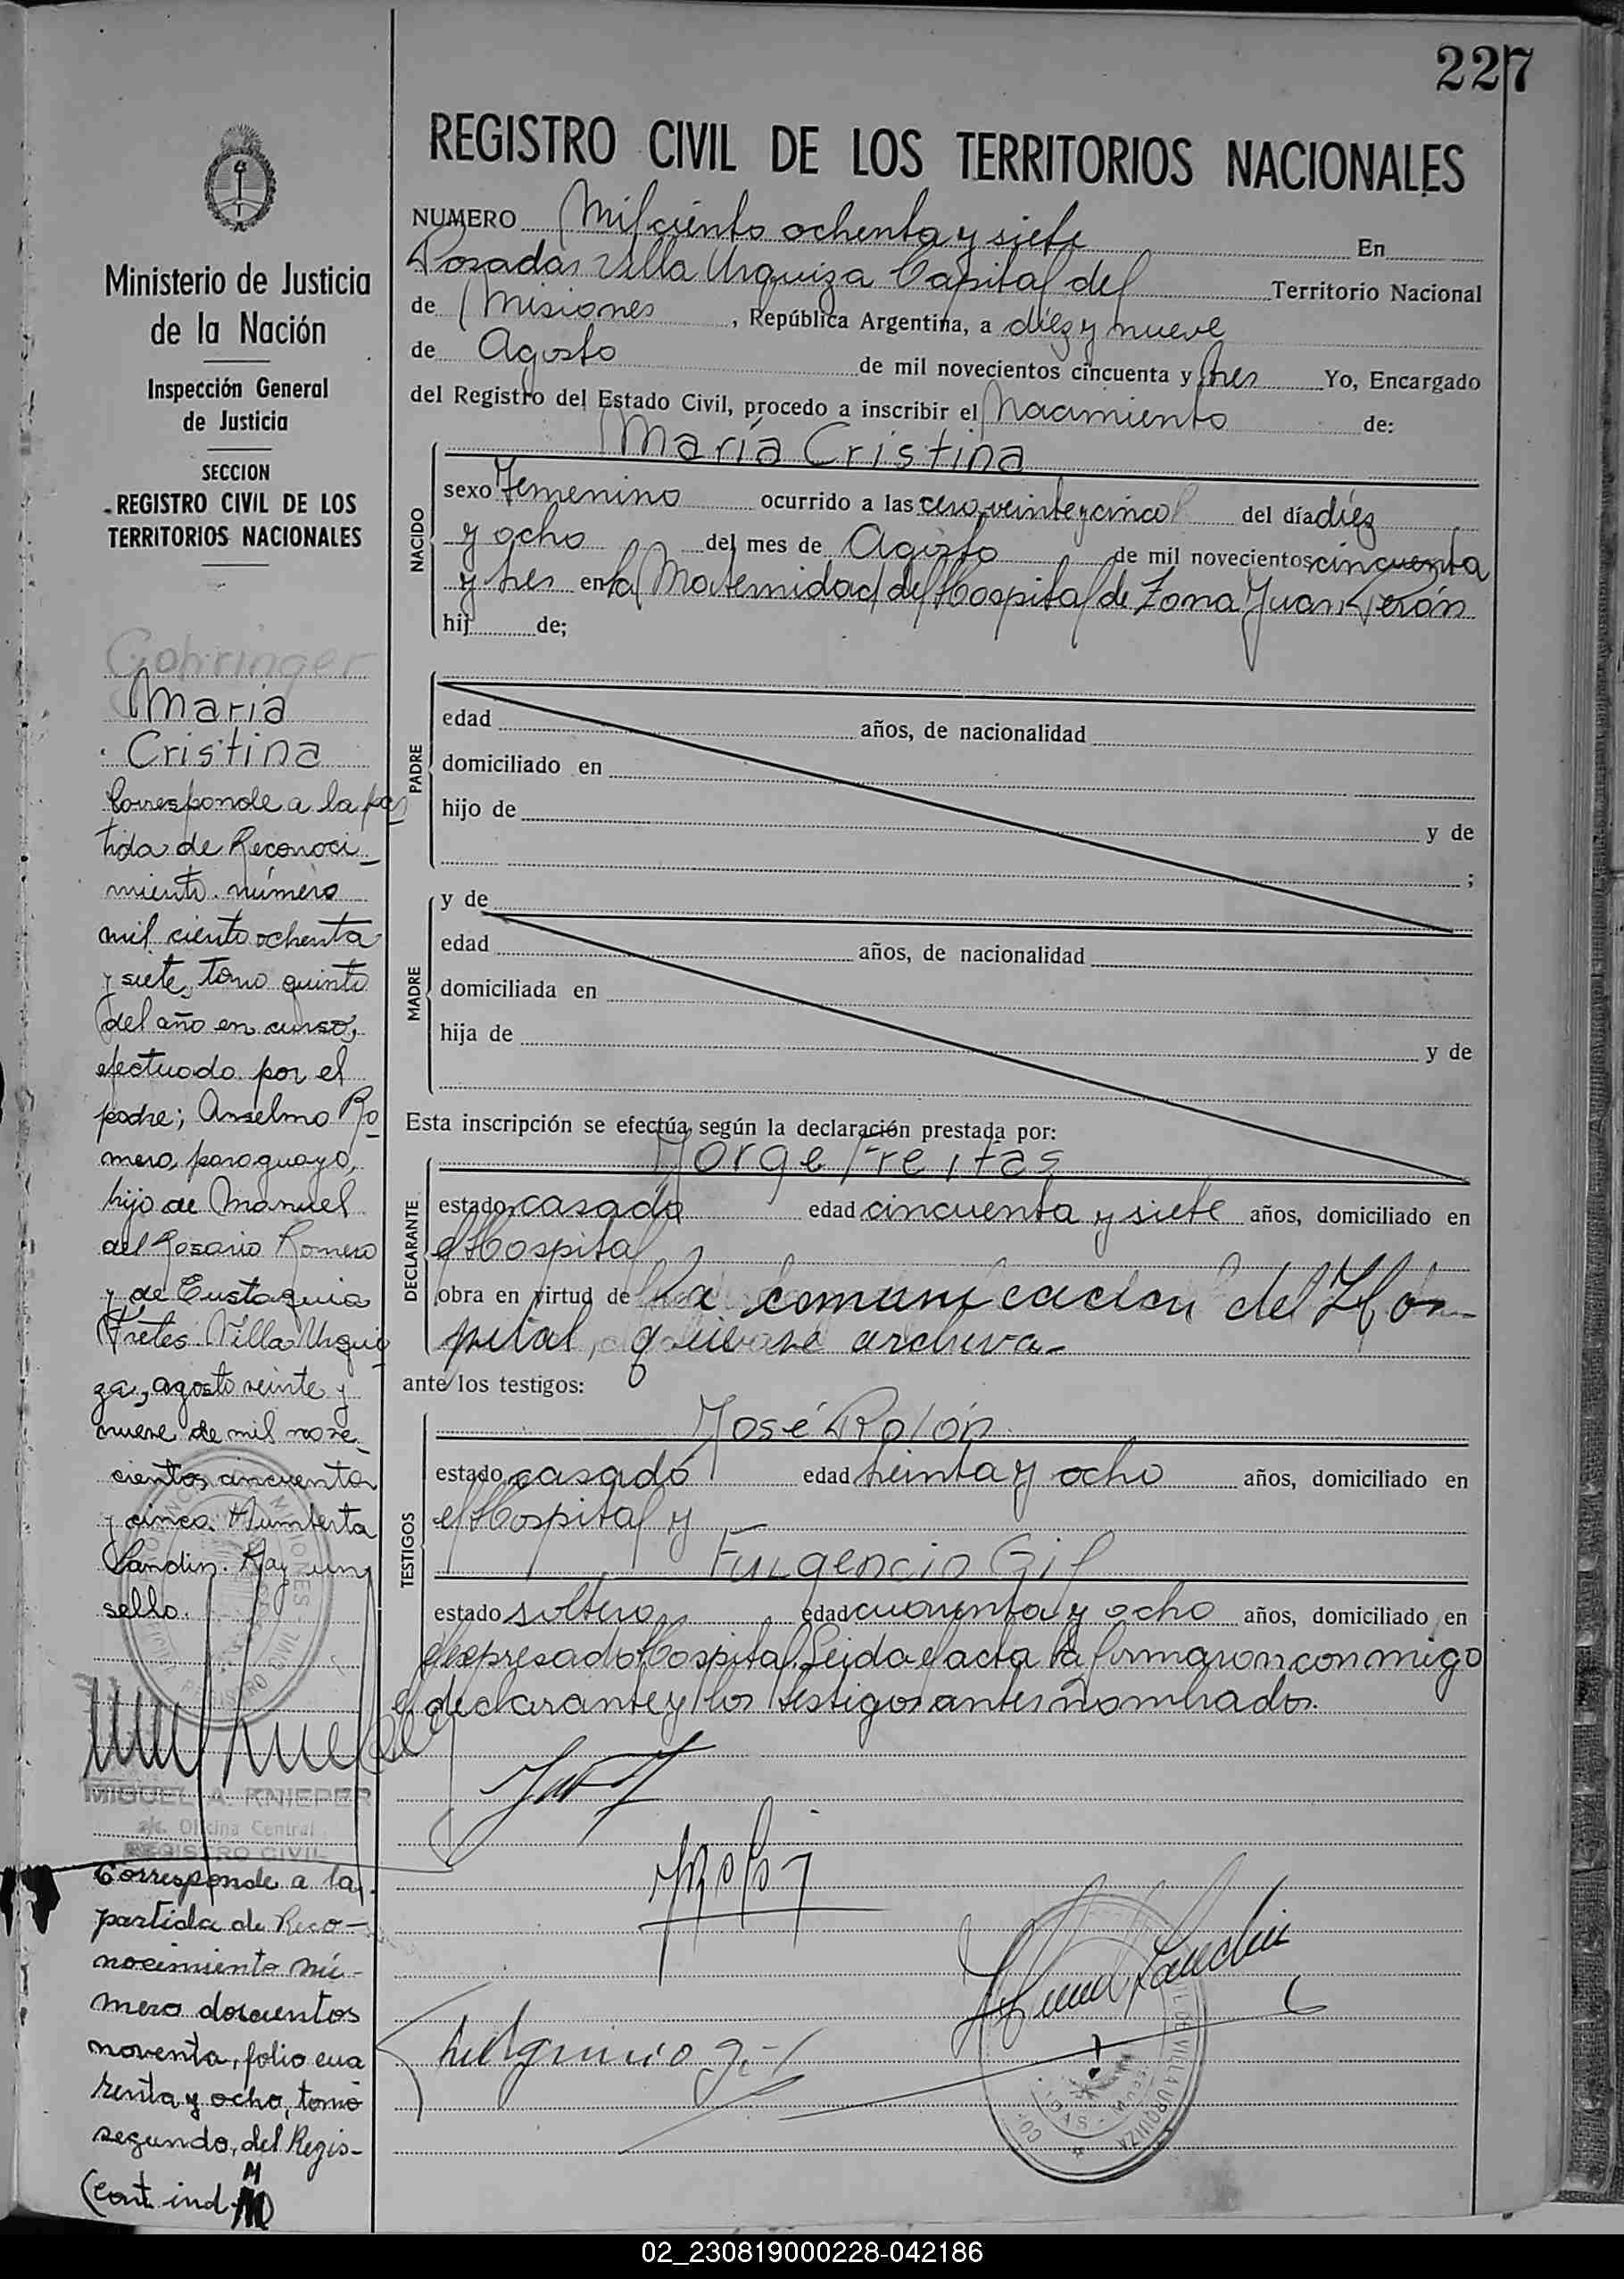 227
REGISTRO CIVIL DE LOS TERRITORIOS NACIONALES
NUMERO Mil ciento ochenta y siete En
Posadas Villa Urquiza Capital del Territorio Nacional
de Misiones, República Argentina, a diez y nueve
de Agosto de mil novecientos cincuenta y tres Yo, Encargado
del Registro del Estado Civil, procedo a inscribir el Nacimiento de:
NACIDO
María Cristina
sexo Femenino ocurrido a las cero veinte y cinco del día diez
y ocho del mes de Agosto de mil novecientos cincuenta
y tres en la Maternidad del Hospital de Zona Juan Perón
hij de;
PADRE
edad años, de nacionalidad
domiciliado en
hijo de y de
;
MADRE
y de
edad años, de nacionalidad
domiciliada en
hija de y de
Esta inscripción se efectúa según la declaración prestada por:
DECLARANTE
Jorge Freitas
estado casado edad cincuenta y siete años, domiciliado en
el Hospital
obra en virtud de la comunicación del Hos-
pital, que se archiva-
ante los testigos:
TESTIGOS
José Rolón
estado casado edad treinta y ocho años, domiciliado en
el Hospital y
Fulgencio Gil
estado soltero edad cuarenta y ocho años, domiciliado en
el expresado Hospital. Leida el acta la firmaron conmigo
el declarante y los testigos antes nombrados.
Ministerio de Justicia
de la Nación
Inspección General
de Justicia
SECCION
REGISTRO CIVIL DE LOS
TERRITORIOS NACIONALES
Gohringer
Maria
Cristina
Corresponde a la par
tida de Reconoci-
miento número
mil ciento ochenta
y siete, tomo quinto
del año en curso,
efectuado por el
padre; Anselmo Ro
mero, paraguayo,
hijo de Manuel
del Rosario Romero
y de Eustaquia
Fretes. Villa Urqui
za, agosto veinte y
nueve de mil nove-
cientos cincuenta
y cinco. Humberta
Landin. Hay un
sello.
MIGUEL A. KNIEPER
a/c. Oficina Central
REGISTRO CIVIL
Corresponde a la
partida de Reco-
nocimiento nú-
mero doscientos
noventa, folio cua
renta y ocho, tomo
segundo, del Regis-
(cont. ind.
VILLA URQUIZA
02_230819000228-042186